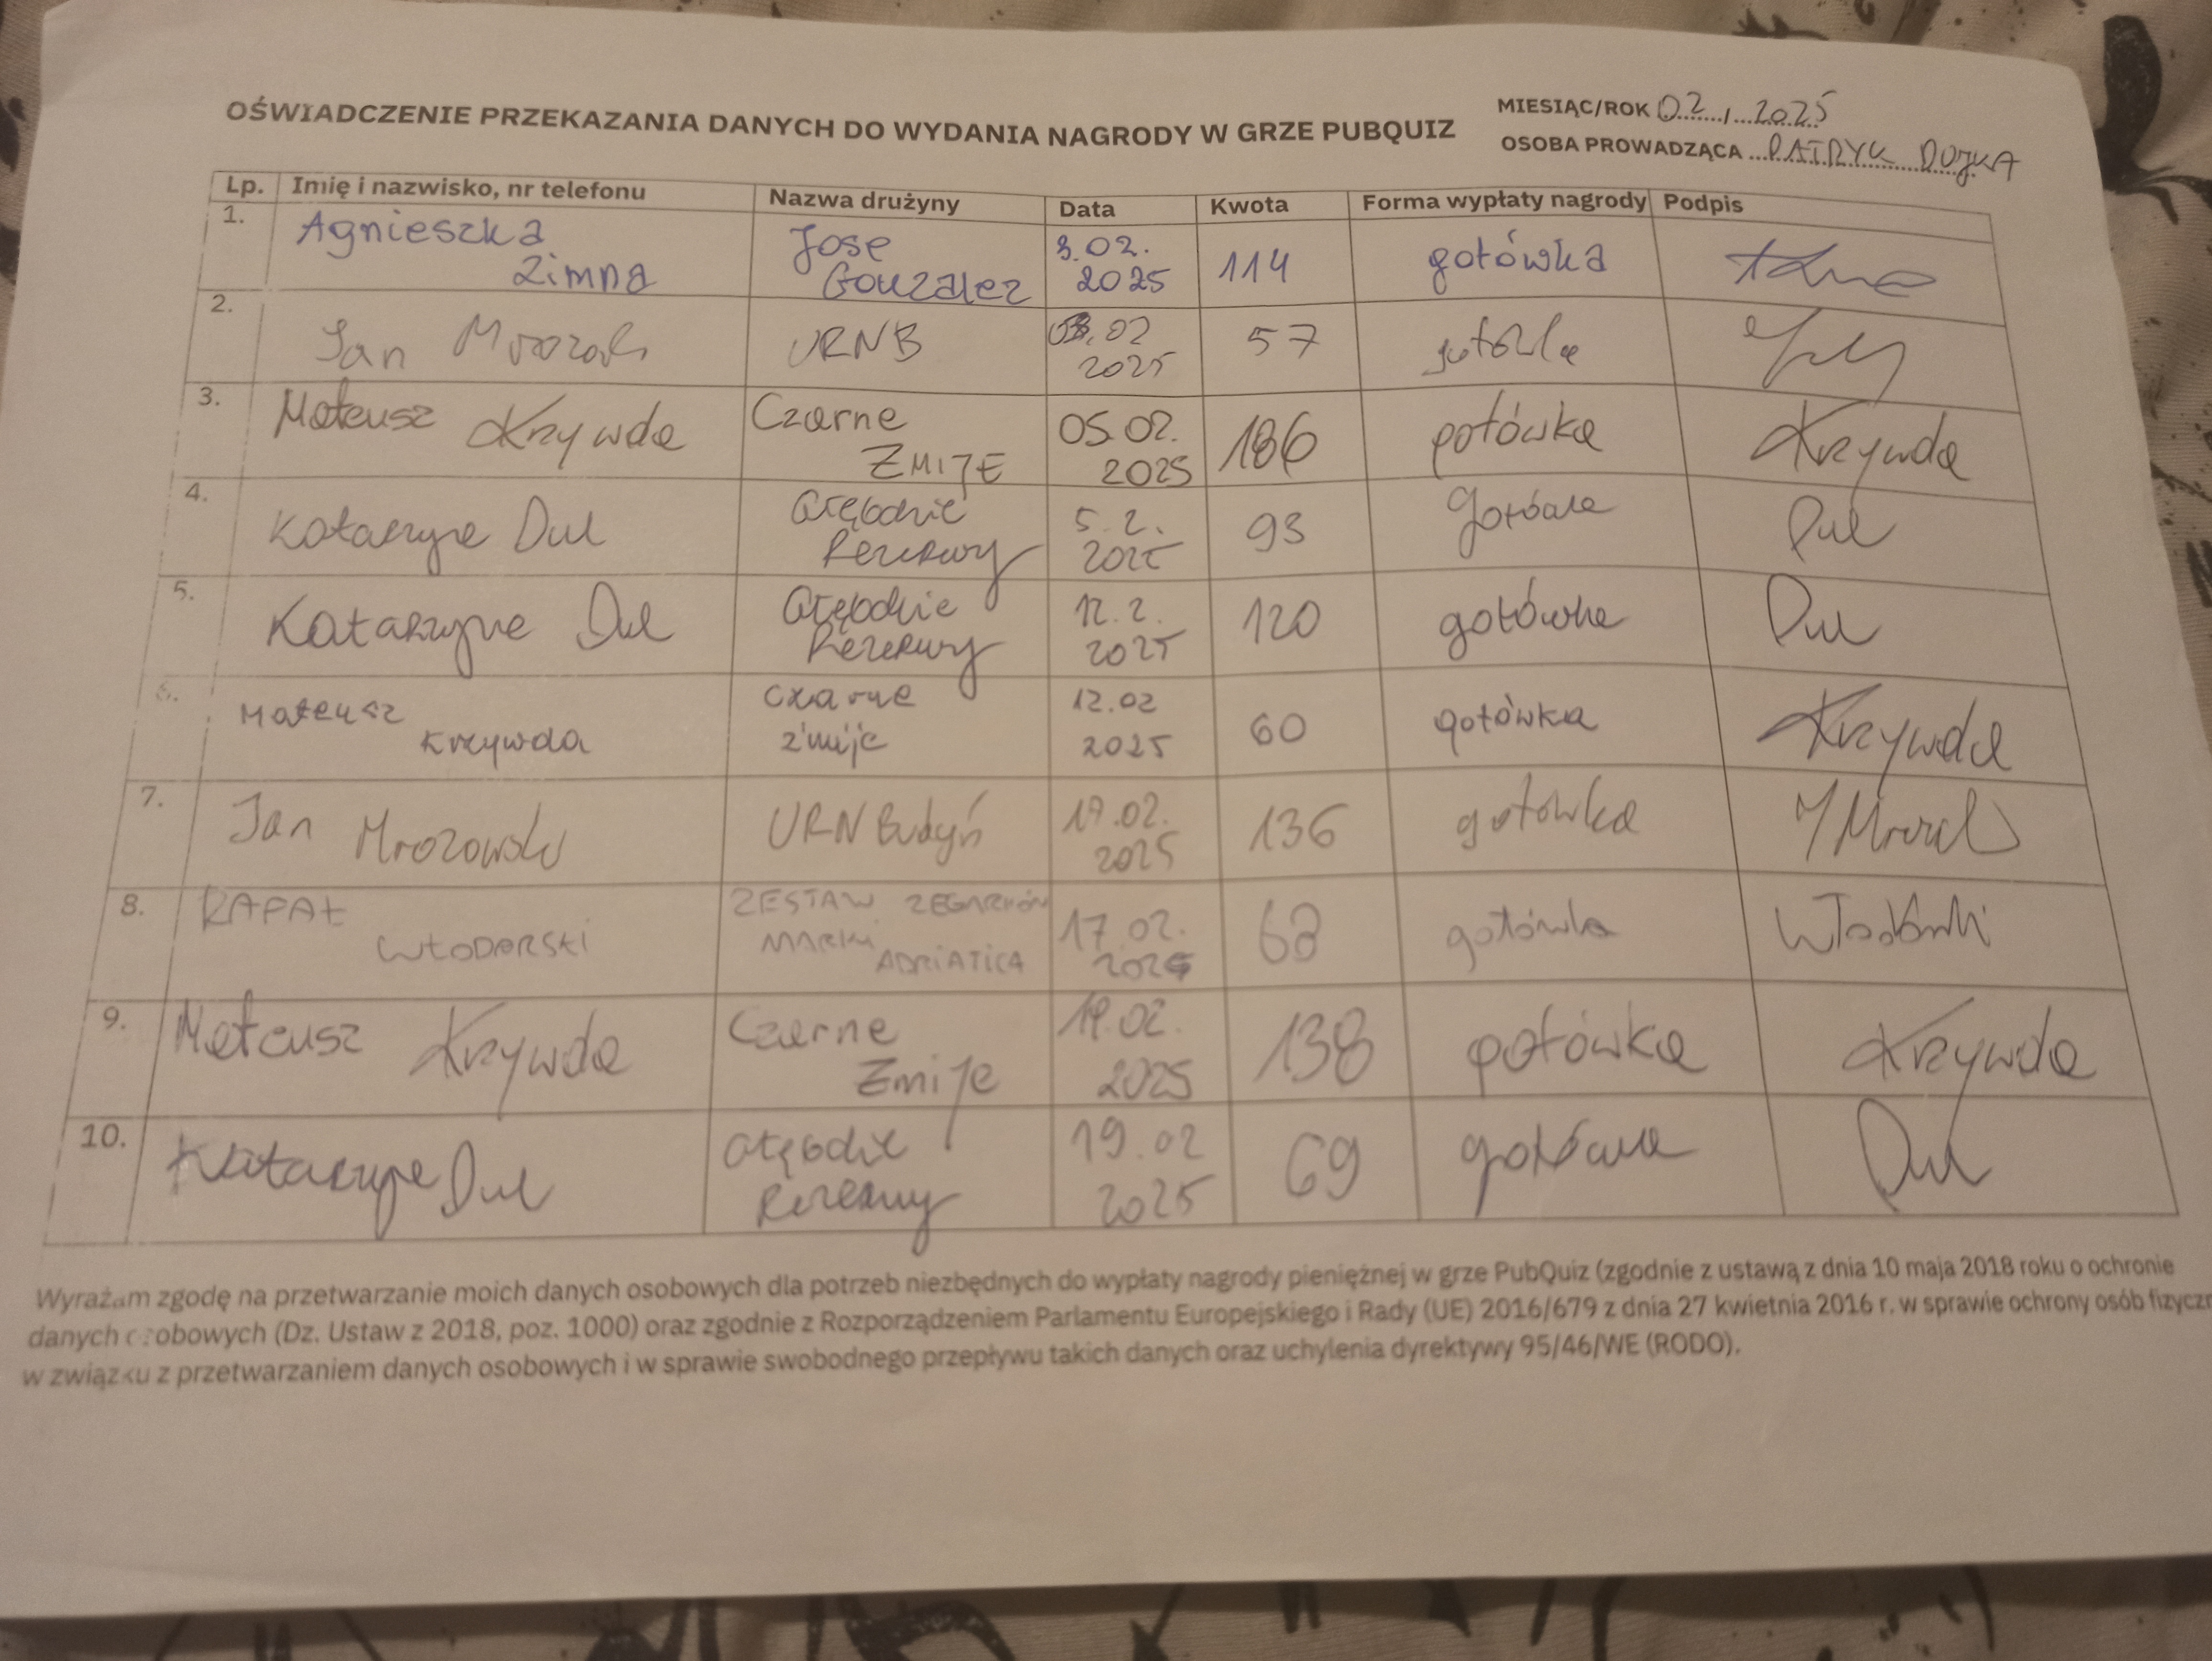 OŚWIADCZENIE PRZEKAZANIA DANYCH DO WYDANIA NAGRODY W GRZE PUBQUIZ
MIESIĄC/ROK 02, 2025
OSOBA PROWADZĄCA PATRYK DOJKA
Lp. Imię i nazwisko, nr telefonu Nazwa drużyny Data Kwota Forma wypłaty nagrody Podpis
1. Agnieszka Zimna Jose Gonzalez 3.02.2025 114 gotówka
2. Jan URNB 03.02 2025 57 gotówka
3. Mateusz Krzywda Czarne ZMIJE 05.02.2025 186 gotówka Krzywda
4. Katarzyna Dul Głębokie Rezerwy 5.2.2025 93 gotówka Dul
5. Katarzyna Dul Głębokie Rezerwy 12.2.2025 120 gotówka Dul
6. Mateusz Krzywda Czarne żmije 12.02 2025 60 gotówka Krzywda
7. Jan Mrozowski URN Budyń 17.02.2025 136 gotówka
8. RAFAŁ WŁODARSKI ZESTAW ZEGARKÓW MARKI ADRIATICA 17.02.2025 68 gotówka
9. Mateusz Krzywda Czarne Żmije 19.02.2025 138 gotówka Krzywda
10. Katarzyna Dul Głębokie Rezerwy 19.02 2025 69 gotówka Dul
Wyrażam zgodę na przetwarzanie moich danych osobowych dla potrzeb niezbędnych do wypłaty nagrody pieniężnej w grze PubQuiz (zgodnie z ustawą z dnia 10 maja 2018 roku o ochronie
danych osobowych (Dz. Ustaw z 2018, poz. 1000) oraz zgodnie z Rozporządzeniem Parlamentu Europejskiego i Rady (UE) 2016/679 z dnia 27 kwietnia 2016 r. w sprawie ochrony osób fizyczn
w związku z przetwarzaniem danych osobowych i w sprawie swobodnego przepływu takich danych oraz uchylenia dyrektywy 95/46/WE (RODO).